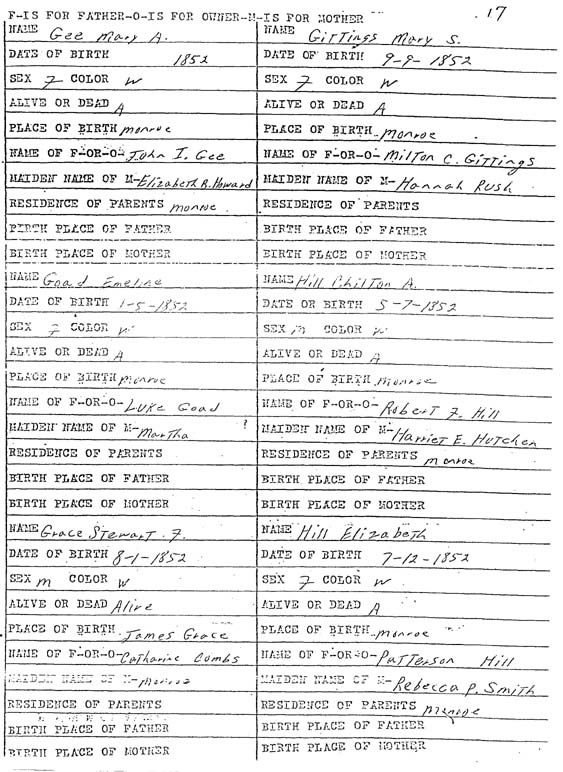 F-IS FOR FATHER-O-IS FOR OWNER-M-IS FOR MOTHER
17
NAME Gee Mary A.
DATE OF BIRTH 1852
SEX F COLOR W
ALIVE OR DEAD A
PLACE OF BIRTH monroe
NAME OF F-OR-O- John I. Gee
MAIDEN NAME OF M- Elizabeth R. Howard
RESIDENCE OF PARENTS monroe
BIRTH PLACE OF FATHER
BIRTH PLACE OF MOTHER
NAME Goad Emeline
DATE OF BIRTH 1-5-1852
SEX F COLOR W
ALIVE OR DEAD A
PLACE OF BIRTH monroe
NAME OF F-OR-O- Luke Goad
MAIDEN NAME OF M- Martha ?
RESIDENCE OF PARENTS
BIRTH PLACE OF FATHER
BIRTH PLACE OF MOTHER
NAME Grace Stewart F.
DATE OF BIRTH 8-1-1852
SEX m COLOR W
ALIVE OR DEAD Alive
PLACE OF BIRTH James Grace
NAME OF F-OR-O- Catharine Combs
MAIDEN NAME OF M- monroe
RESIDENCE OF PARENTS
BIRTH PLACE OF FATHER
BIRTH PLACE OF MOTHER
NAME Gittings Mary S.
DATE OF BIRTH 9-9-1852
SEX F COLOR W
ALIVE OR DEAD A
PLACE OF BIRTH monroe
NAME OF F-OR-O- Milton C. Gittings
MAIDEN NAME OF M- Hannah Rush
RESIDENCE OF PARENTS
BIRTH PLACE OF FATHER
BIRTH PLACE OF MOTHER
NAME Hill Chilton A.
DATE OR BIRTH 5-7-1852
SEX m COLOR W
ALIVE OR DEAD A
PLACE OF BIRTH monroe
NAME OF F-OR-O- Robert F. Hill
MAIDEN NAME OF M- Harriet E. Hutchen
RESIDENCE OF PARENTS monroe
BIRTH PLACE OF FATHER
BIRTH PLACE OF MOTHER
NAME Hill Elizabeth
DATE OF BIRTH 7-12-1852
SEX F COLOR W
ALIVE OR DEAD A
PLACE OF BIRTH monroe
NAME OF F-OR-O- Patterson Hill
MAIDEN NAME OF M- Rebecca P. Smith
RESIDENCE OF PARENTS monroe
BIRTH PLACE OF FATHER
BIRTH PLACE OF MOTHER